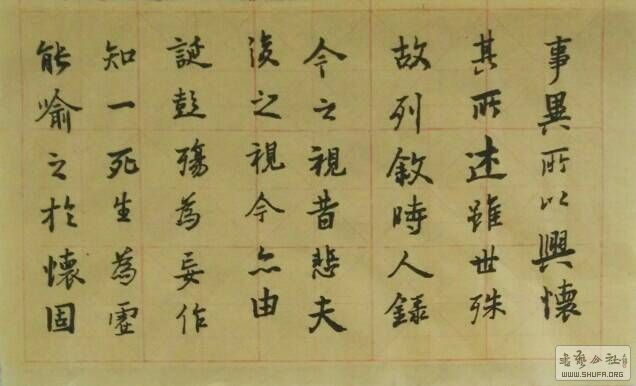 事異所以興懷
其所述雖世殊
故列敘時人錄
今之視昔悲夫
後之視今亦由
誕彭殤為妄作
知一死生為虛
能喻之於懷固
WWW.SHUFA.ORG